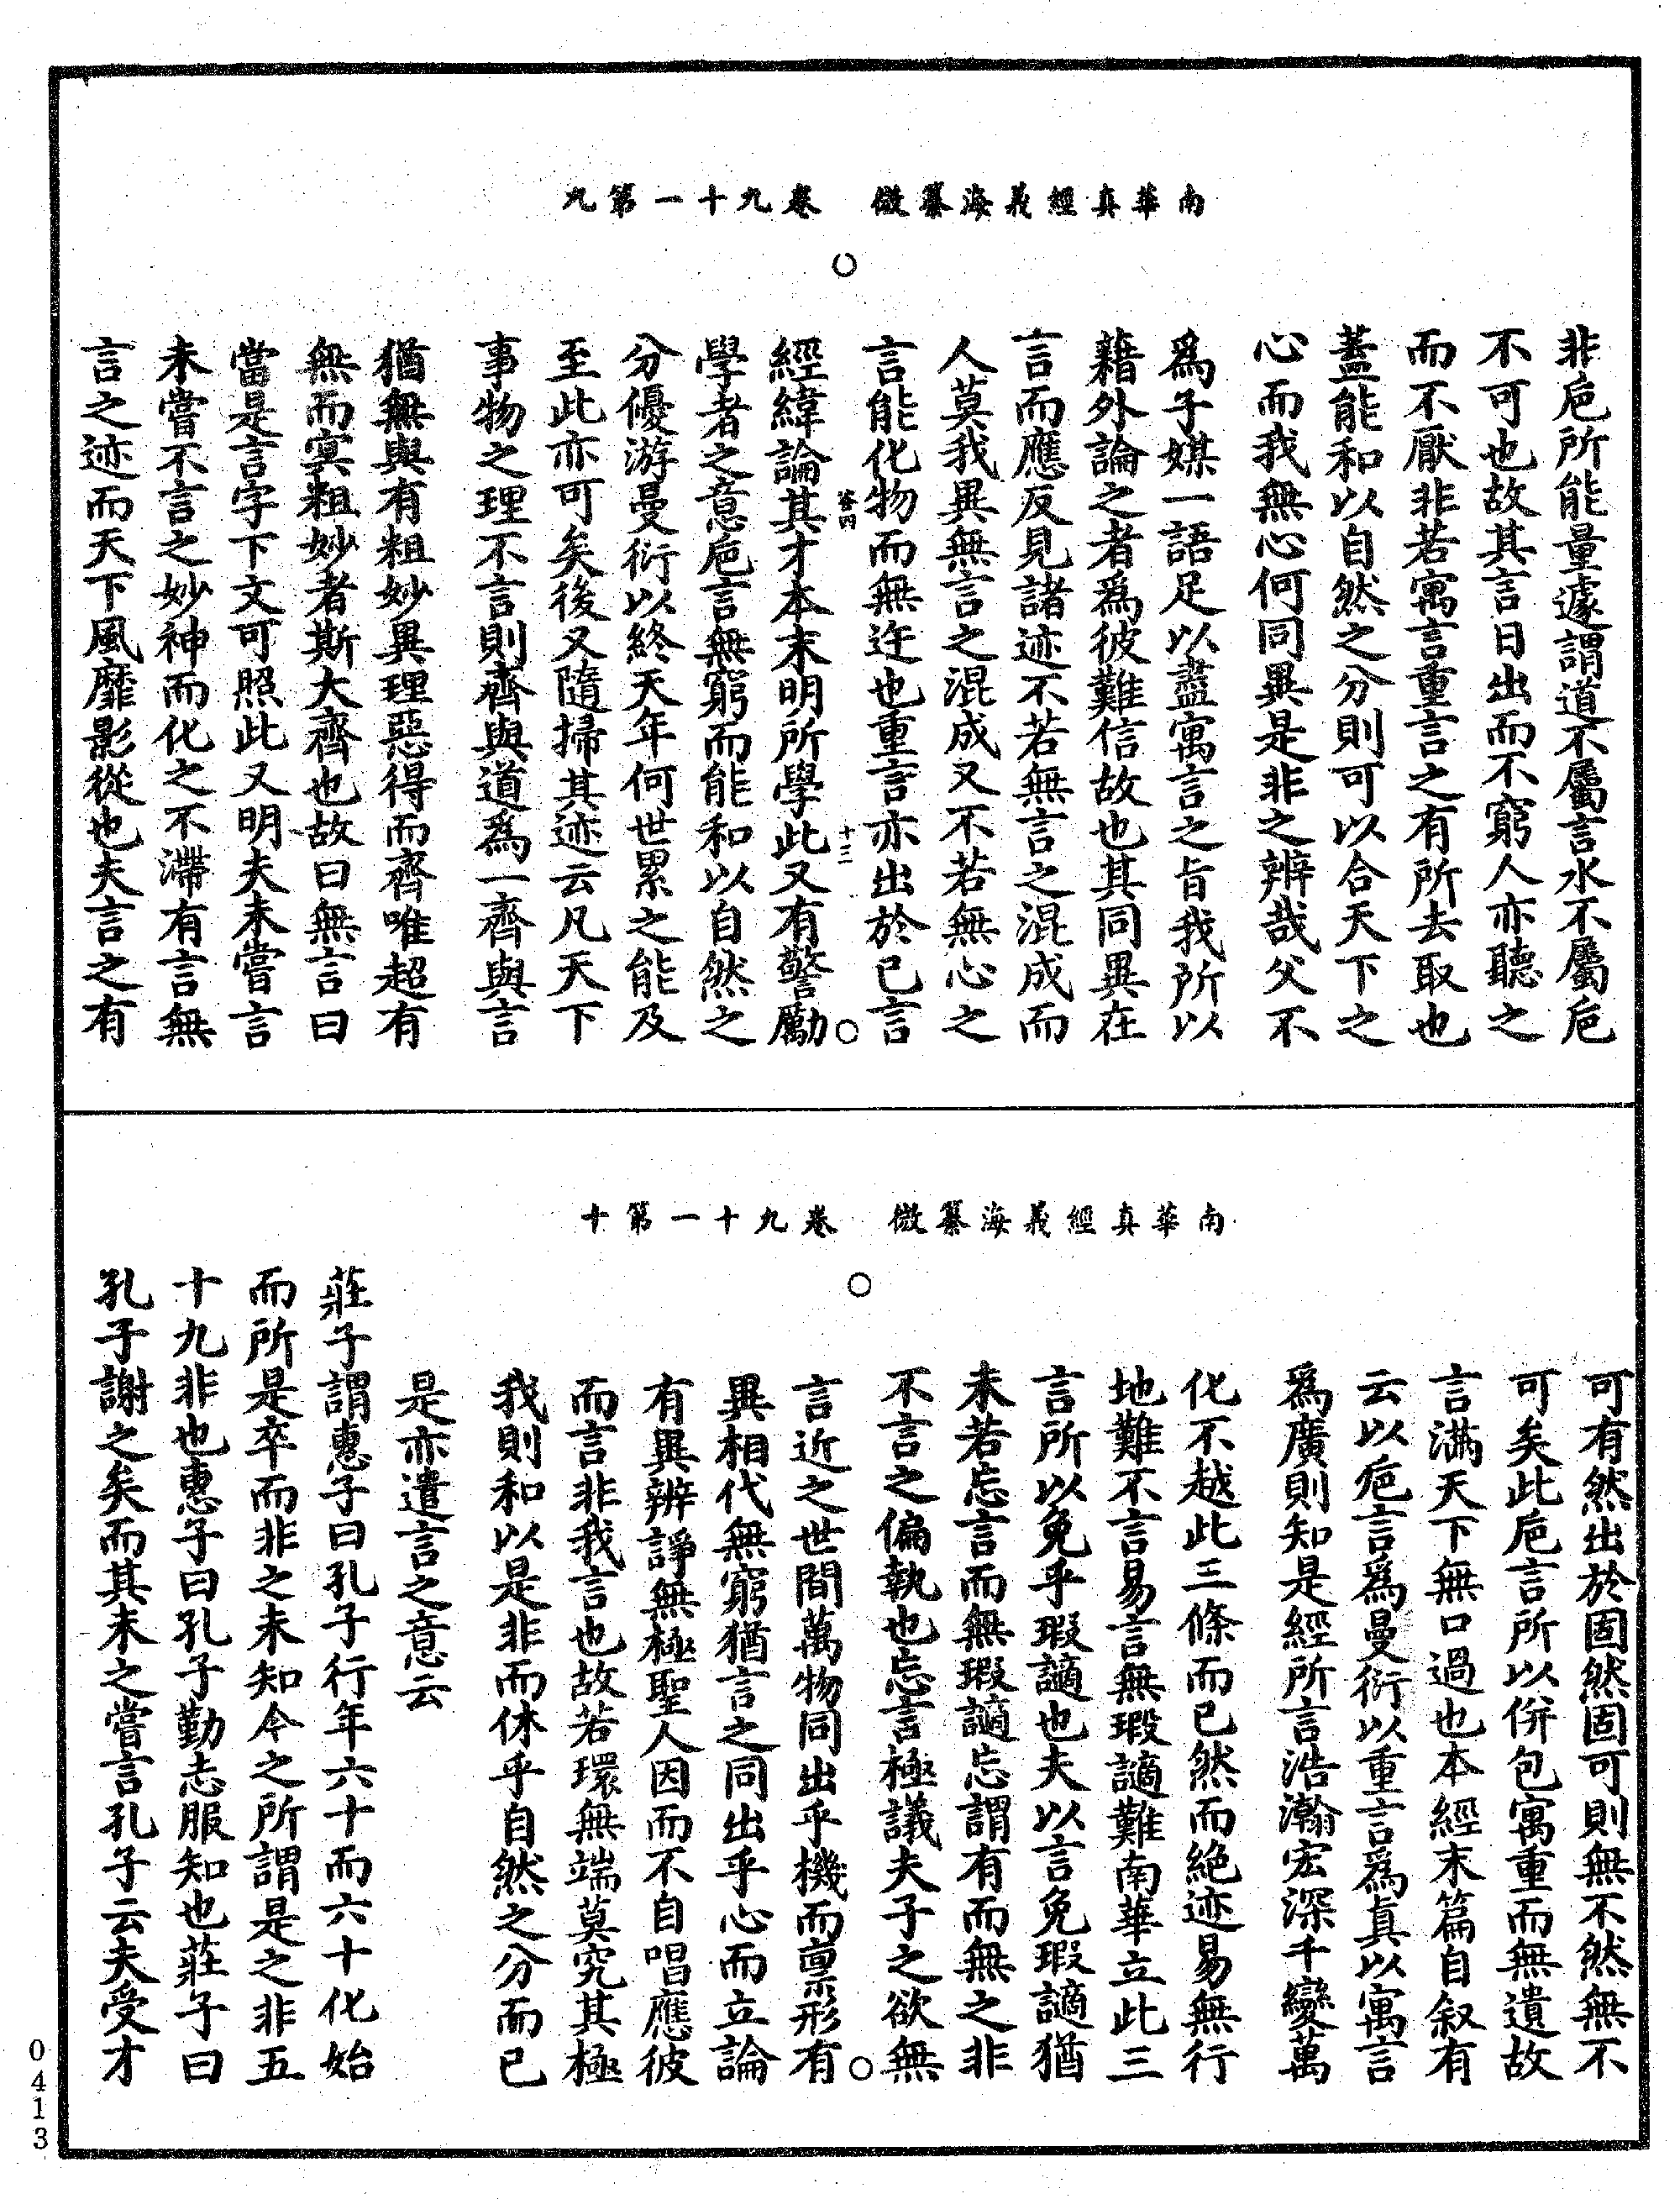 南華真經義海纂微　卷九十一第九
非巵所能量遽謂道不屬言水不屬巵
不可也故其言日出而不窮人亦聽之
而不厭非若寓言重言之有所去取也
蓋能和以自然之分則可以合天下之
心而我無心何同異是非之辨哉父不
爲子媒一語足以盡寓言之旨我所以
藉外論之者爲彼難信故也其同異在
言而應反見諸迹不若無言之混成而
人莫我異無言之混成又不若無心之
言能化物而無迕也重言亦出於己言
十三
經緯論其才本末明所學此又有警勵
學者之意巵言無窮而能和以自然之
分優游曼衍以終天年何世累之能及
至此亦可矣後又隨掃其迹云凡天下
事物之理不言則齊與道爲一齊與言
猶無與有粗妙異理惡得而齊唯超有
無而冥粗妙者斯大齊也故曰無言曰
當是言字下文可照此又明夫未嘗言
未嘗不言之妙神而化之不滯有言無
言之迹而天下風靡影從也夫言之有
南華真經義海纂微　卷九十一第十
可有然出於固然固可則無不然無不
可矣此巵言所以併包寓重而無遺故
言滿天下無口過也本經末篇自叙有
云以巵言爲曼衍以重言爲真以寓言
爲廣則知是經所言浩瀚宏深千變萬
化不越此三條而已然而絶迹易無行
地難不言易言無瑕謫難南華立此三
言所以免乎瑕謫也夫以言免瑕謫猶
未若忘言而無瑕謫忘謂有而無之非
不言之偏執也忘言極議夫子之欲無
言近之世間萬物同出乎機而禀形有
異相代無窮猶言之同出乎心而立論
有異辨諍無極聖人因而不自唱應彼
而言非我言也故若環無端莫究其極
我則和以是非而休乎自然之分而已
是亦遣言之意云
莊子謂惠子曰孔子行年六十而六十化始
而所是卒而非之未知今之所謂是之非五
十九非也惠子曰孔子勤志服知也莊子曰
孔子謝之矣而其未之嘗言孔子云夫受才
0413